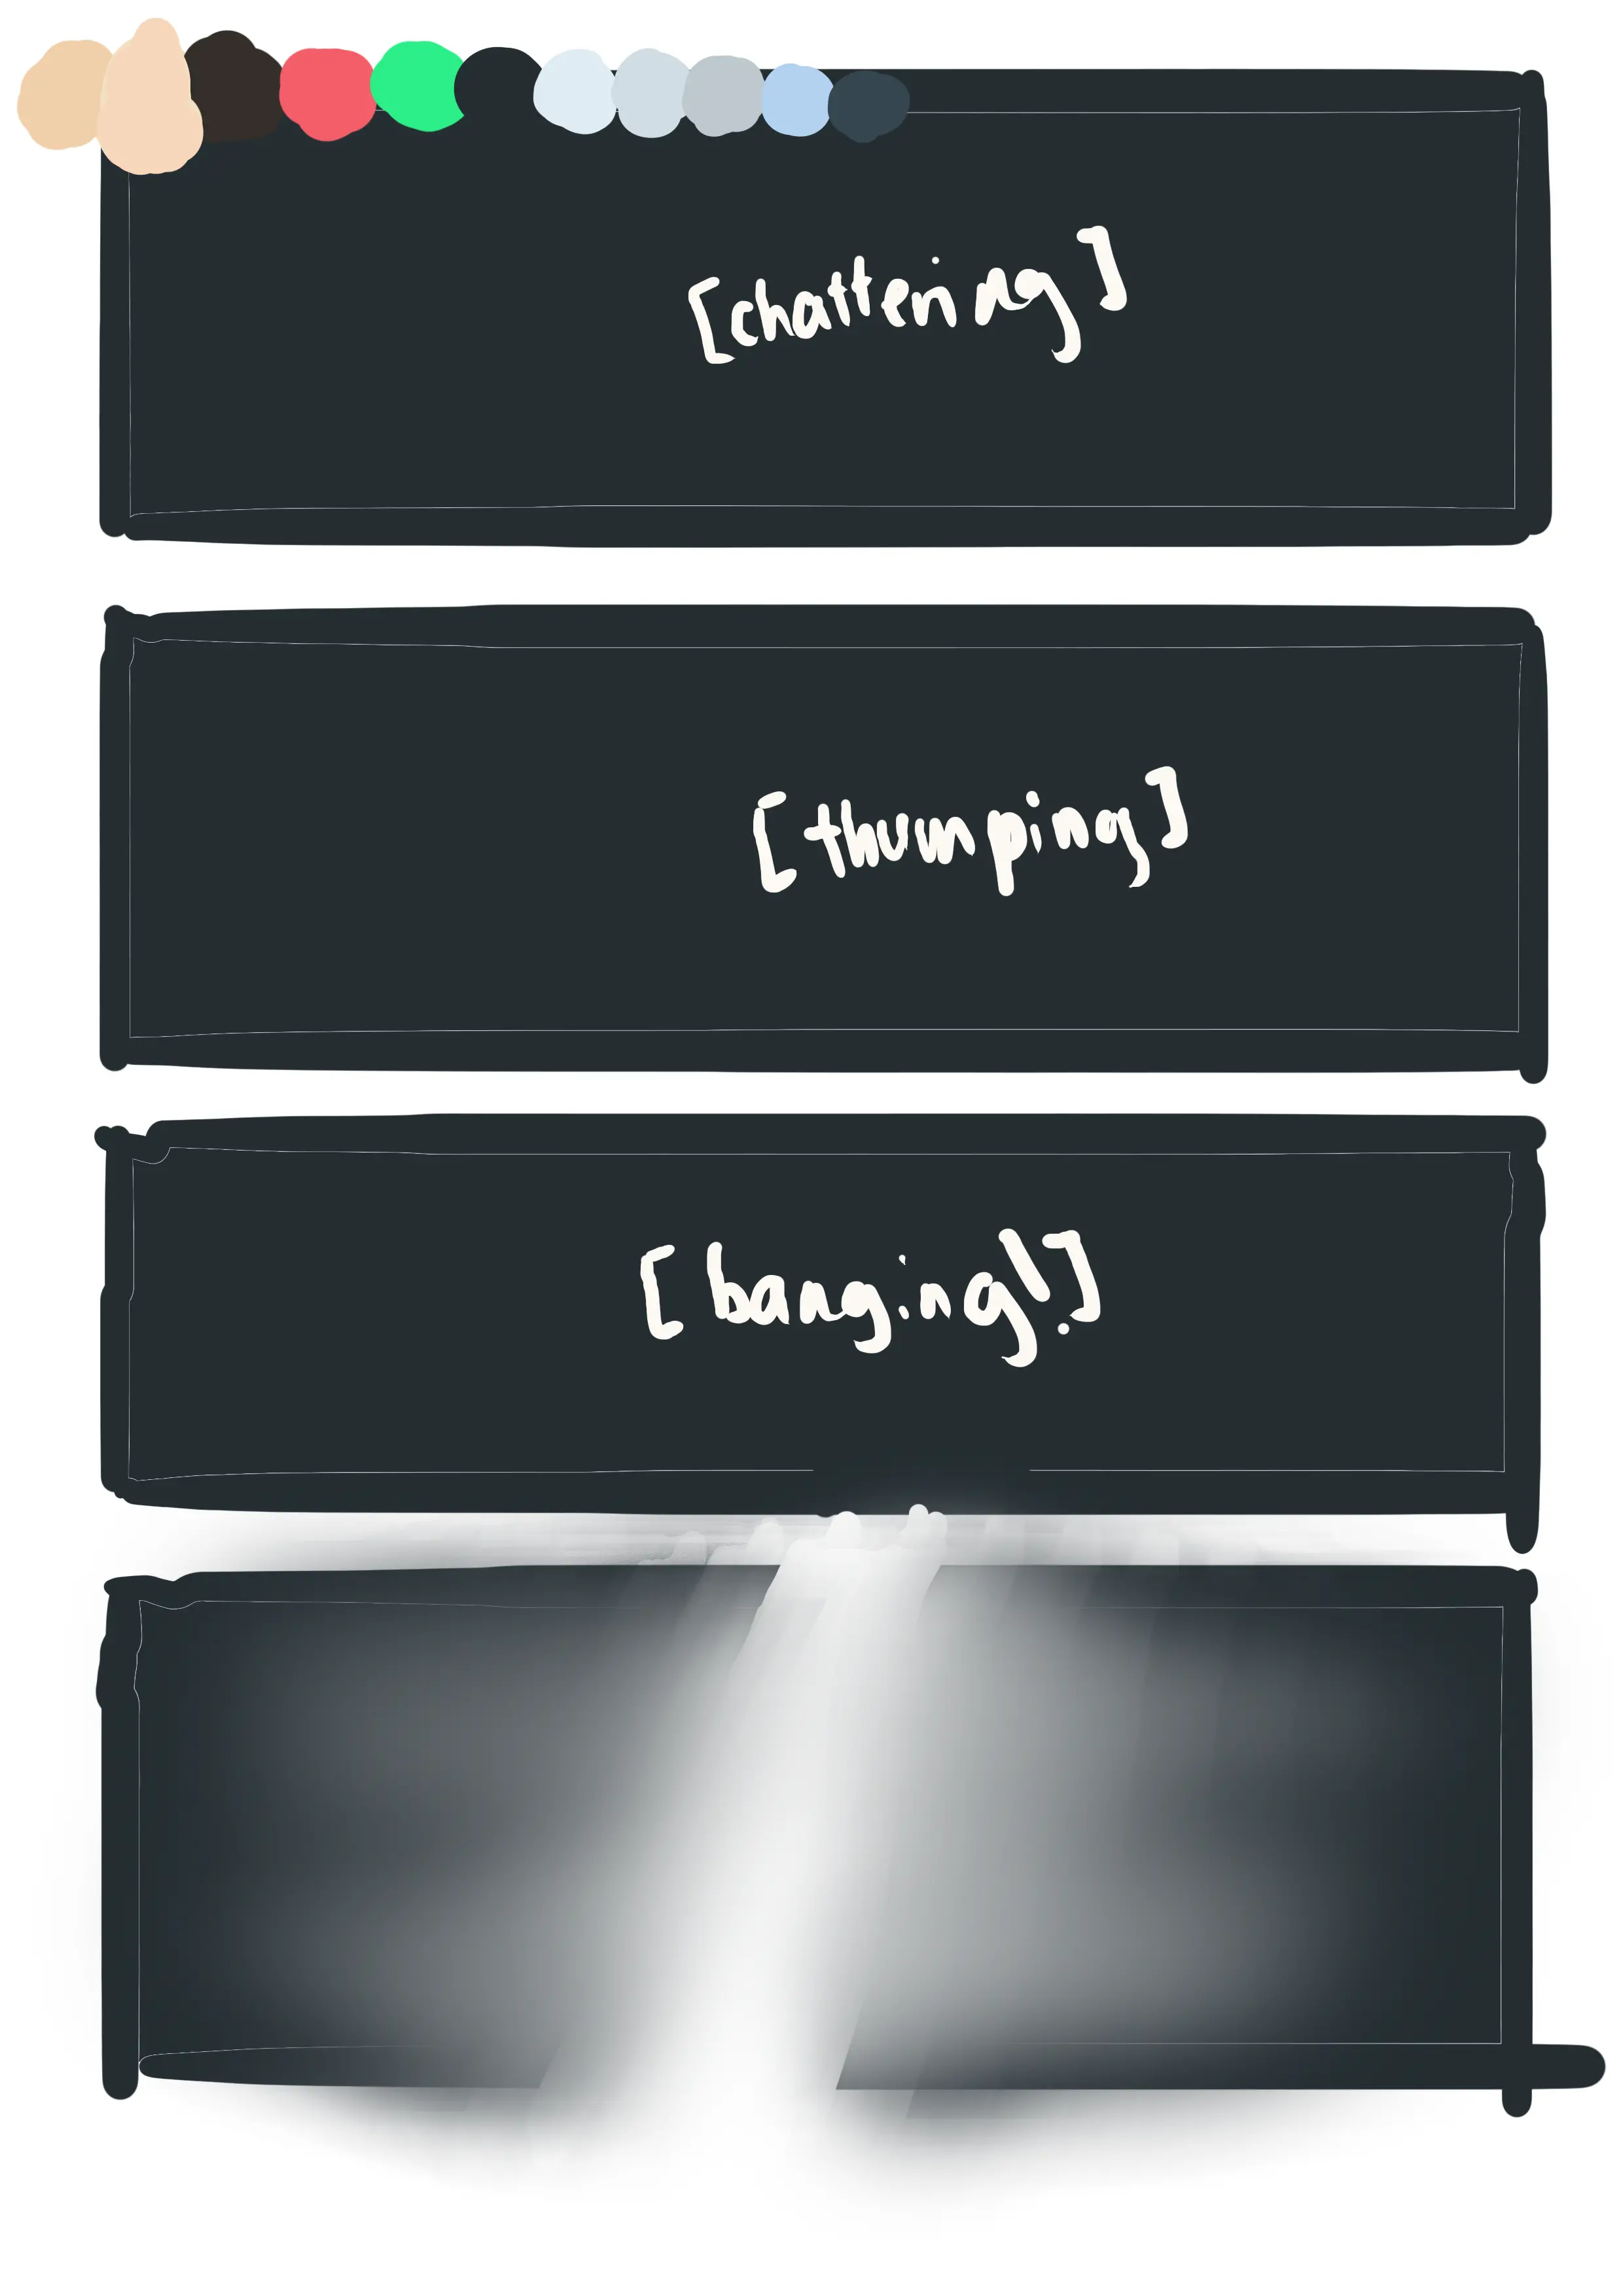 [chattering]
[thumping]
[banging!]